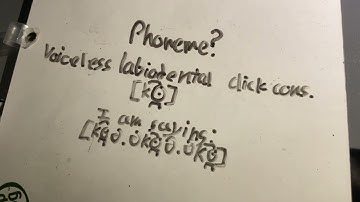 Phoneme?
Voiceless labiodental click cons.
[kʘ̪]
I am saying: